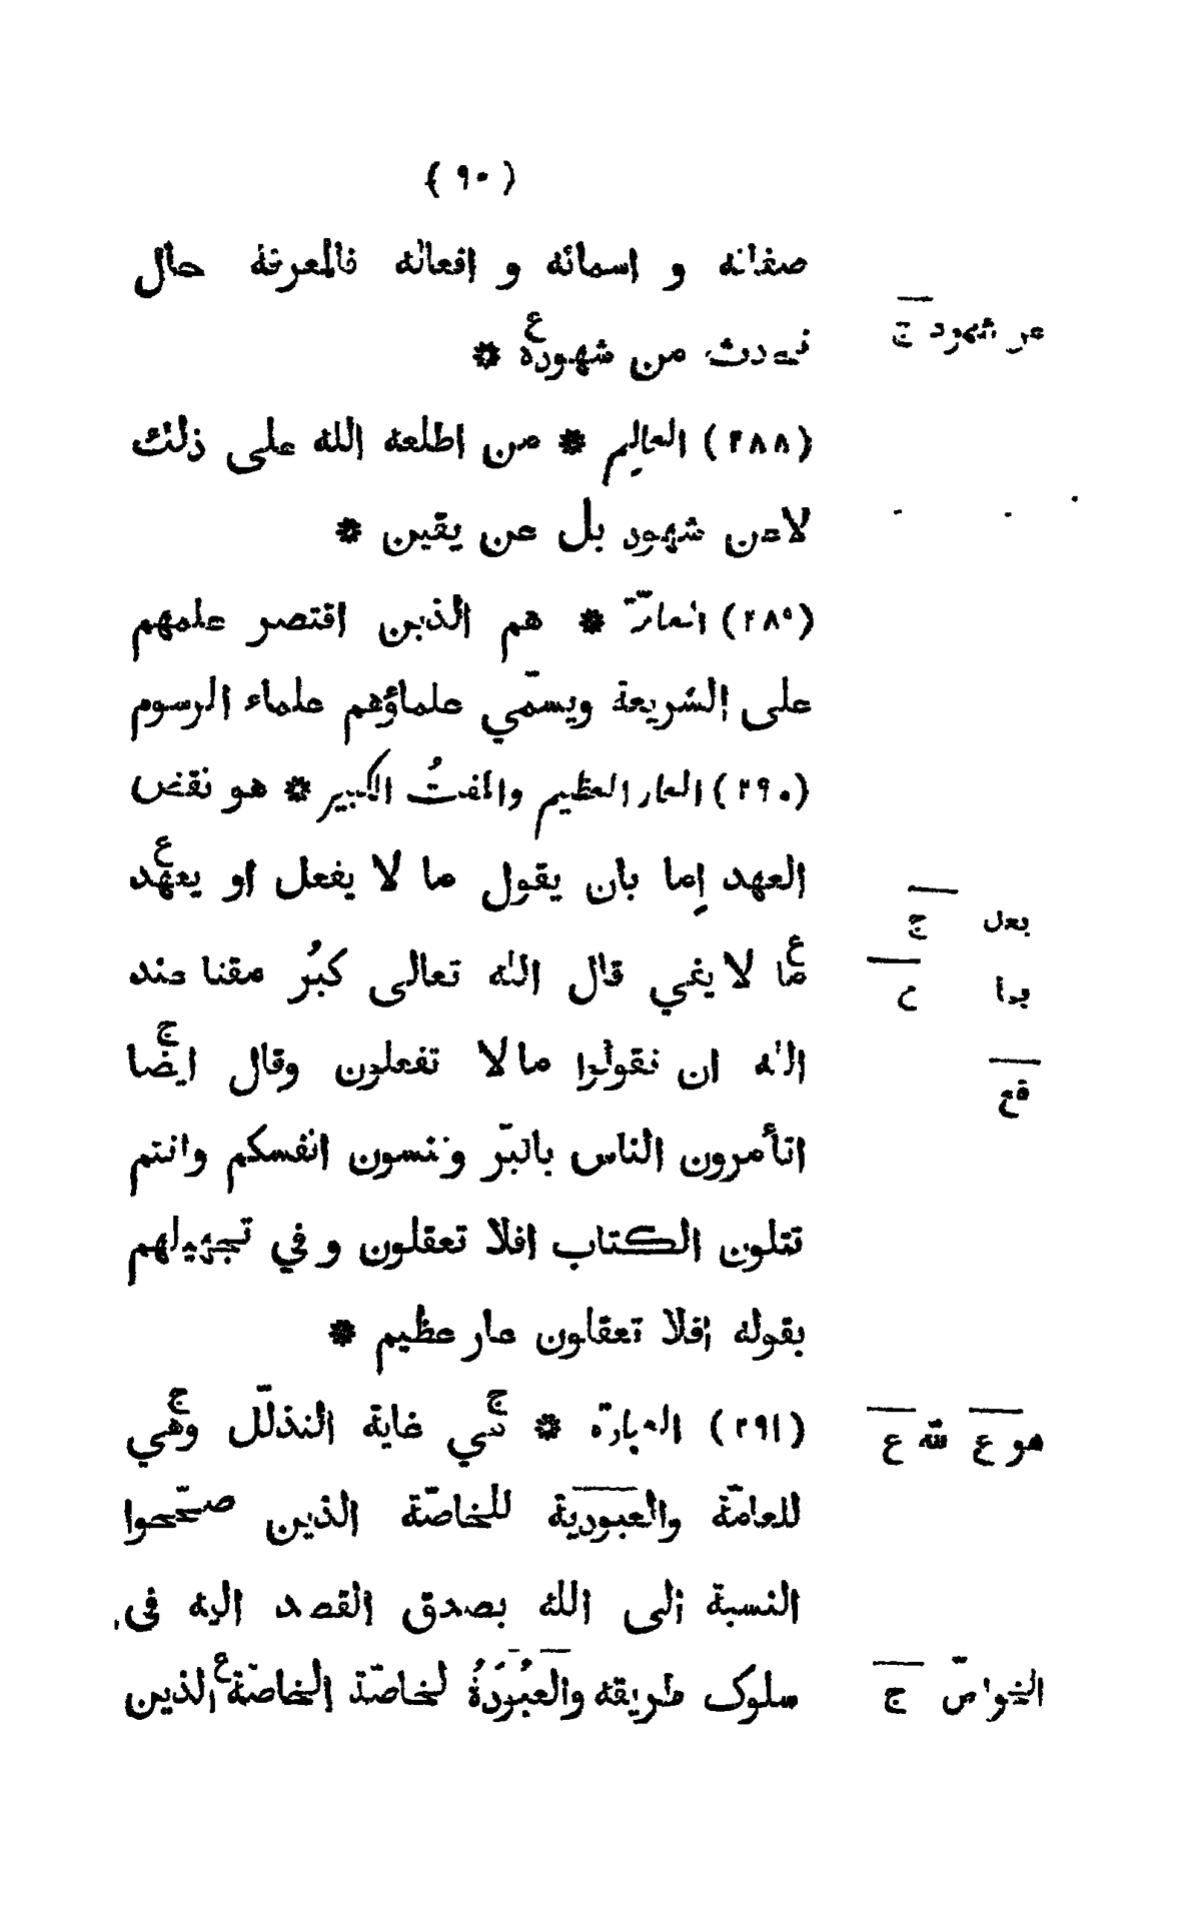 ( ٩٠ )
صفاته و اسمائه و افعاله فالمعرفة حال
تحدث من شهوده ع *
عن شهود ج
(٢٨٨) العالِم * من اطلعه الله على ذلك
لا عن شهود بل عن يقين *
(٢٨٩) العامّة * هم الذين اقتصر علمهم
على الشريعة ويسمّي علماؤهم علماء الرسوم
(٢٩٠) العار العظيم والمقتُ الكبير * هو نقض
العهد إما بان يقول ما لا يفعل او يعهد ع
يعل ج
ما ع لا يفي قال الله تعالى كبُر مقتا عند
بدا ح
الله ان تقولوا ما لا تفعلون وقال ايضا ج
قع
اتأمرون الناس بالبرّ وتنسون انفسكم وانتم
تتلون الكتاب افلا تعقلون و في تجهيلهم
بقوله افلا تعقلون عار عظيم *
(٢٩١) العبادة * هي ج غاية التذلّل وهي ج
هو ع لله ع
للعامّة والعبودية للخاصّة الذين صحّحوا
النسبة الى الله بصدق القصد اليه في
سلوك طريقه والعَبُودَةُ لخاصّة الخاصّة ع الذين
الخواصّ ج